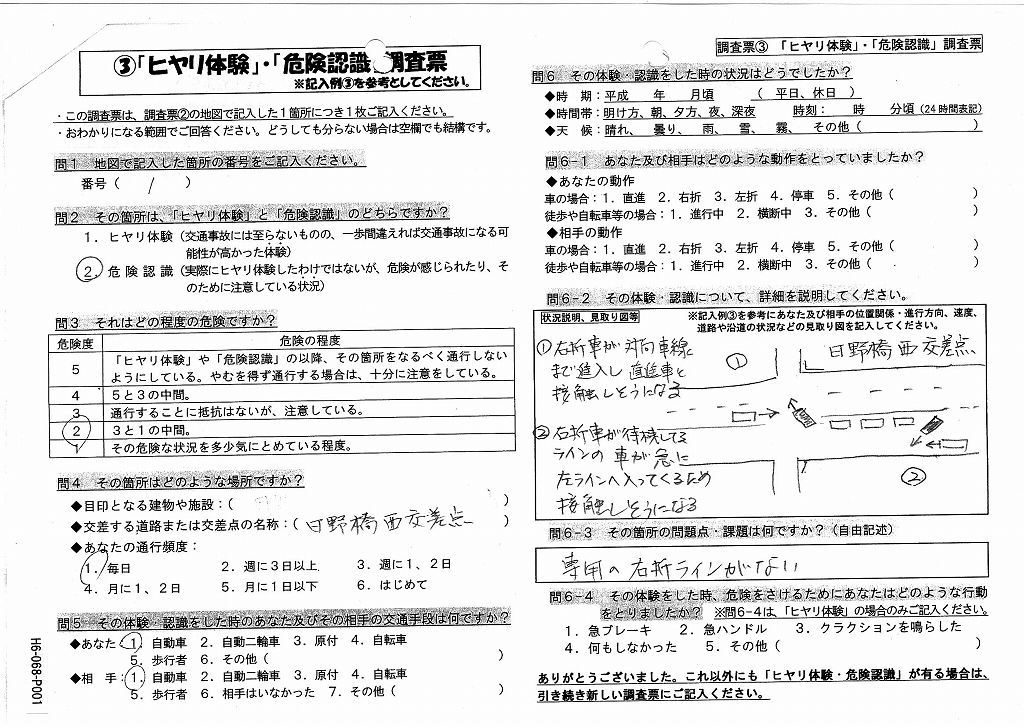 ③「ヒヤリ体験」・「危険認識」調査票
※記入例③を参考としてください。
・この調査票は、調査票②の地図で記入した1箇所につき1枚ご記入ください。
・おわかりになる範囲でご回答ください。どうしても分らない場合は空欄でも結構です。
問1 地図で記入した箇所の番号をご記入ください。
番号( 1 )
問2 その箇所は、「ヒヤリ体験」と「危険認識」のどちらですか?
1. ヒヤリ体験(交通事故には至らないものの、一歩間違えれば交通事故になる可
能性が高かった体験)
2. 危険認識(実際にヒヤリ体験したわけではないが、危険が感じられたり、そ
のために注意している状況)
問3 それはどの程度の危険ですか?
危険度 危険の程度
5 「ヒヤリ体験」や「危険認識」の以降、その箇所をなるべく通行しない
ようにしている。やむを得ず通行する場合は、十分に注意をしている。
4 5と3の中間。
3 通行することに抵抗はないが、注意している。
2 3と1の中間。
1 その危険な状況を多少気にとめている程度。
問4 その箇所はどのような場所ですか?
◆目印となる建物や施設:( )
◆交差する道路または交差点の名称:(日野橋西交差点 )
◆あなたの通行頻度:
1. 毎日 2. 週に3日以上 3. 週に1、2日
4. 月に1、2日 5. 月に1日以下 6. はじめて
問5 その体験・認識をした時のあなた及びその相手の交通手段は何ですか?
◆あなた:1. 自動車 2. 自動二輪車 3. 原付 4. 自転車
5. 歩行者 6. その他( )
◆相 手:1. 自動車 2. 自動二輪車 3. 原付 4. 自転車
5. 歩行者 6. 相手はいなかった 7. その他( )
H6-068-P001
調査票③ 「ヒヤリ体験」・「危険認識」調査票
問6 その体験・認識をした時の状況はどうでしたか?
◆時 期:平成 年 月頃 ( 平日、休日 )
◆時間帯:明け方、朝、夕方、夜、深夜 時刻: 時 分頃(24時間表記)
◆天 候:晴れ、 曇り、 雨、 雪、 霧、 その他( )
問6-1 あなた及び相手はどのような動作をとっていましたか?
◆あなたの動作
車の場合:1. 直進 2. 右折 3. 左折 4. 停車 5. その他( )
徒歩や自転車等の場合:1. 進行中 2. 横断中 3. その他( )
◆相手の動作
車の場合:1. 直進 2. 右折 3. 左折 4. 停車 5. その他( )
徒歩や自転車等の場合:1. 進行中 2. 横断中 3. その他( )
問6-2 その体験・認識について、詳細を説明してください。
状況説明、見取り図等 ※記入例③を参考にあなた及び相手の位置関係・進行方向、速度、
道路や沿道の状況などの見取り図を記入してください。
①右折車が対向車線
まで進入し直進車と
接触しそうになる
①
日野橋西交差点
②右折車が待機してる
ラインの車が急に
左ラインへ入ってくるため
接触しそうになる
②
問6-3 その箇所の問題点・課題は何ですか?(自由記述)
専用の右折ラインがない
問6-4 その体験をした時、危険をさけるためにあなたはどのような行動
をとりましたか? ※問6-4は、「ヒヤリ体験」の場合のみご記入ください。
1. 急ブレーキ 2. 急ハンドル 3. クラクションを鳴らした
4. 何もしなかった 5. その他( )
ありがとうございました。これ以外にも「ヒヤリ体験・危険認識」が有る場合は、
引き続き新しい調査票にご記入ください。